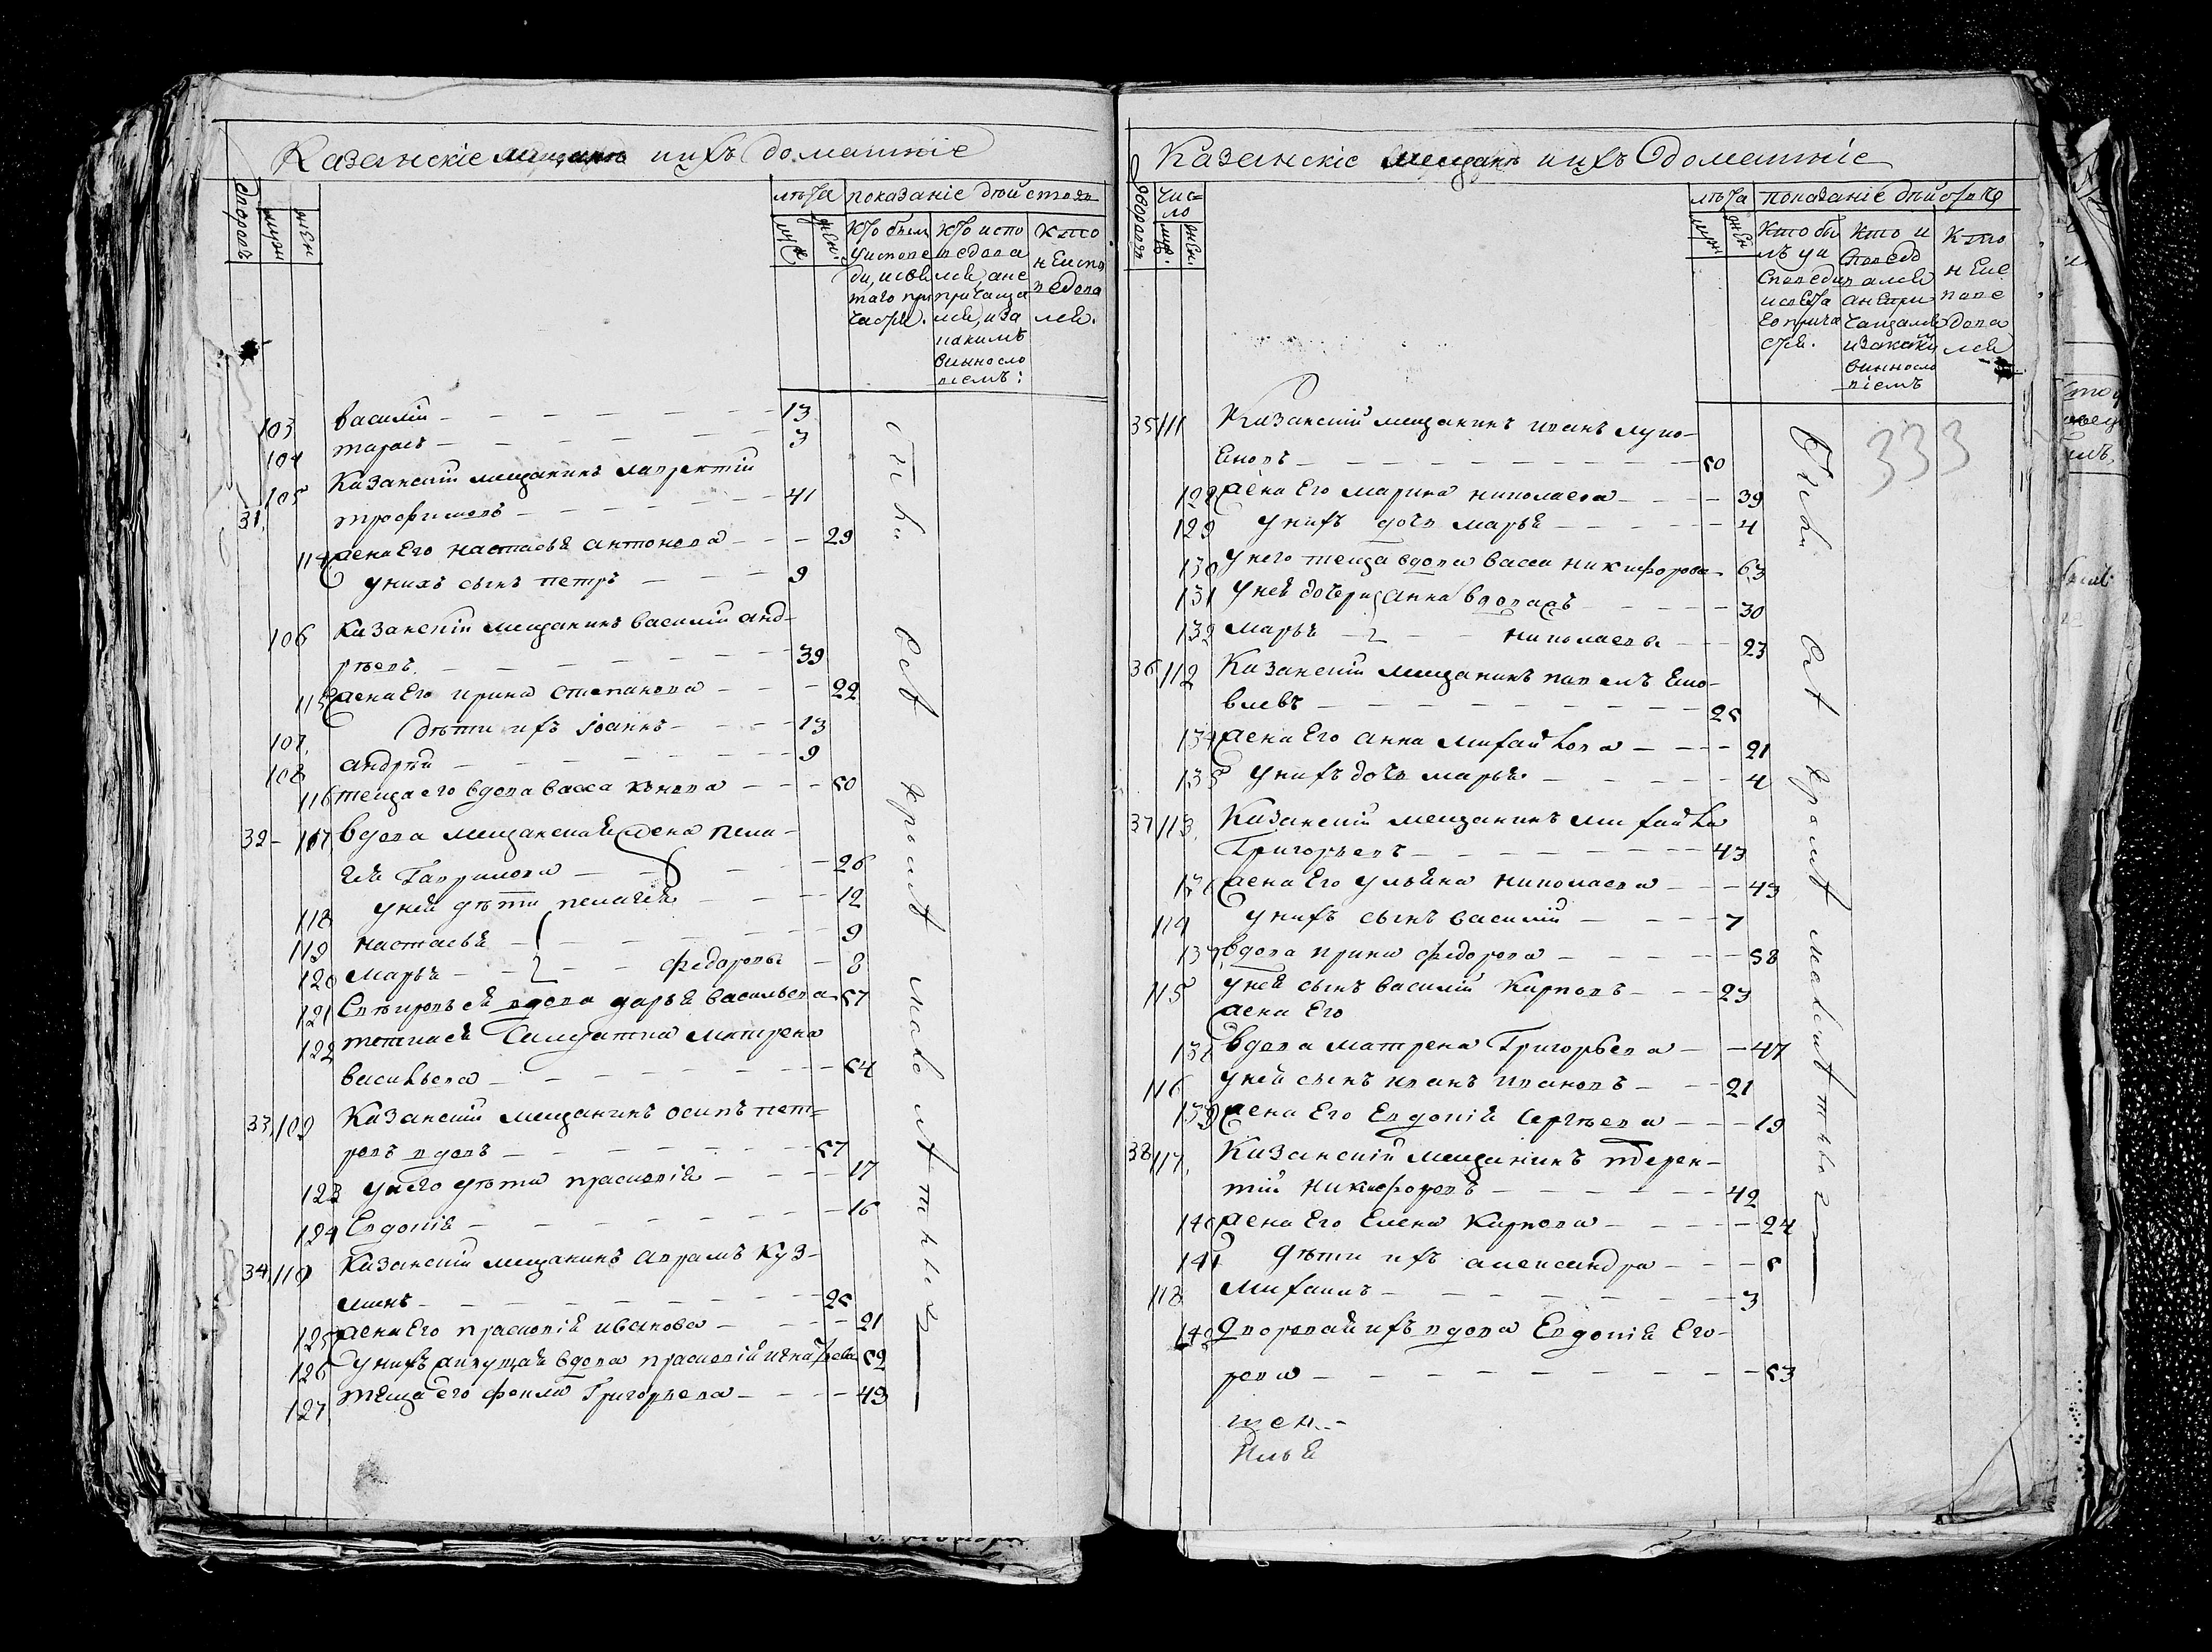 Казанскіе мещане ихъ домашніе
дворовъ
муж
жен
лѣта
показаніе дѣйство
муж
жен.
кто былъ у исповѣди, и свя таго при частія.
кто испо вѣдова лся, а не причаща лся, и за какимъ винносло віемъ:
кто не испо вѣдова лся.
103 василій — 13
104 тарасъ — 3
31. 105 Казанскій мещанинъ лаврентій
трофимовъ — 41
114 жена Его настасья антонова — 29
у нихъ сынъ петръ — 9
106 Казанскій мещанинъ василій анд-
рѣевъ — 39
115 жена Его ирина степанова — 22
107. дѣти ихъ іоаннъ — 13
108 андрѣй — 9
116 теща его вдова васса — 50
32 — 117 вдова мещанская жена пела-
гѣя Гаврилова — 26
118 у ней дѣти пелагѣя — 12
119 настасья — 9
120 марья — федоровы — 8
121 вдова дарья васильева 57
122 матрена
васильева — 54
33. 109 Казанскій мещанинъ осипъ пет=
ровъ вдовъ — 57
123 у него дѣти прасковія — 17
124 Евдокія — 16
34. 110 Казанскій мещанинъ аврамъ куз-
минъ — 25
125 жена Его прасковія иванова — 21
126 у нихъ живущая вдова прасковія 52
127 теща его фекла Григорьева — 49
всѣ кромѣ малолѣтныхъ
Казанскіе мещане ихъ домашніе
дворовъ
чис=
ло
муж.
жен.
лѣта
показаніе дѣйство
муж
жен
кто бы лъ у и споведи и свята го прича стія.
кто и споведо вался а не при чащался и за каким винносло віемъ
кто не ис пове дова лся
333
35 111 Казанскій мещанинъ иванъ луко-
яновъ — 50
128 жена Его марина николаева — 39
129 у нихъ дочь марья — 4
130 у него теща вдова васса никифорова — 63
131 у ней дочери анна вдова — 30
132 марья — николаевы — 23
36 112 Казанскій мещанинъ павелъ
— 25
134 жена Его анна михайлова — 21
135 у нихъ дочь марья — 4
37 113. Казанскій мещанинъ михайла
Григорьевъ — 43
136 жена Его ульяна николаева — 43
114 у нихъ сынъ василій — 7
137 вдова ирина федорова — 58
115 у ней сынъ василій Карповъ — 23
жена Его
138 вдова матрена Григорьева — 47
116 у ней сынъ иванъ ивановъ — 21
139 жена Его Евдокія Сергѣева — 19
38 117. Казанскій мещанинъ терен-
тій никифоровъ — 42
140 жена Его Елена Карпова — 24
141 дѣти ихъ александра — 5
118 Михаилъ — 3
142 дворовая ихъ вдова Евдокія Его-
рова — 53
щен.-
Илья
были всѣ кромѣ малолѣтныхъ